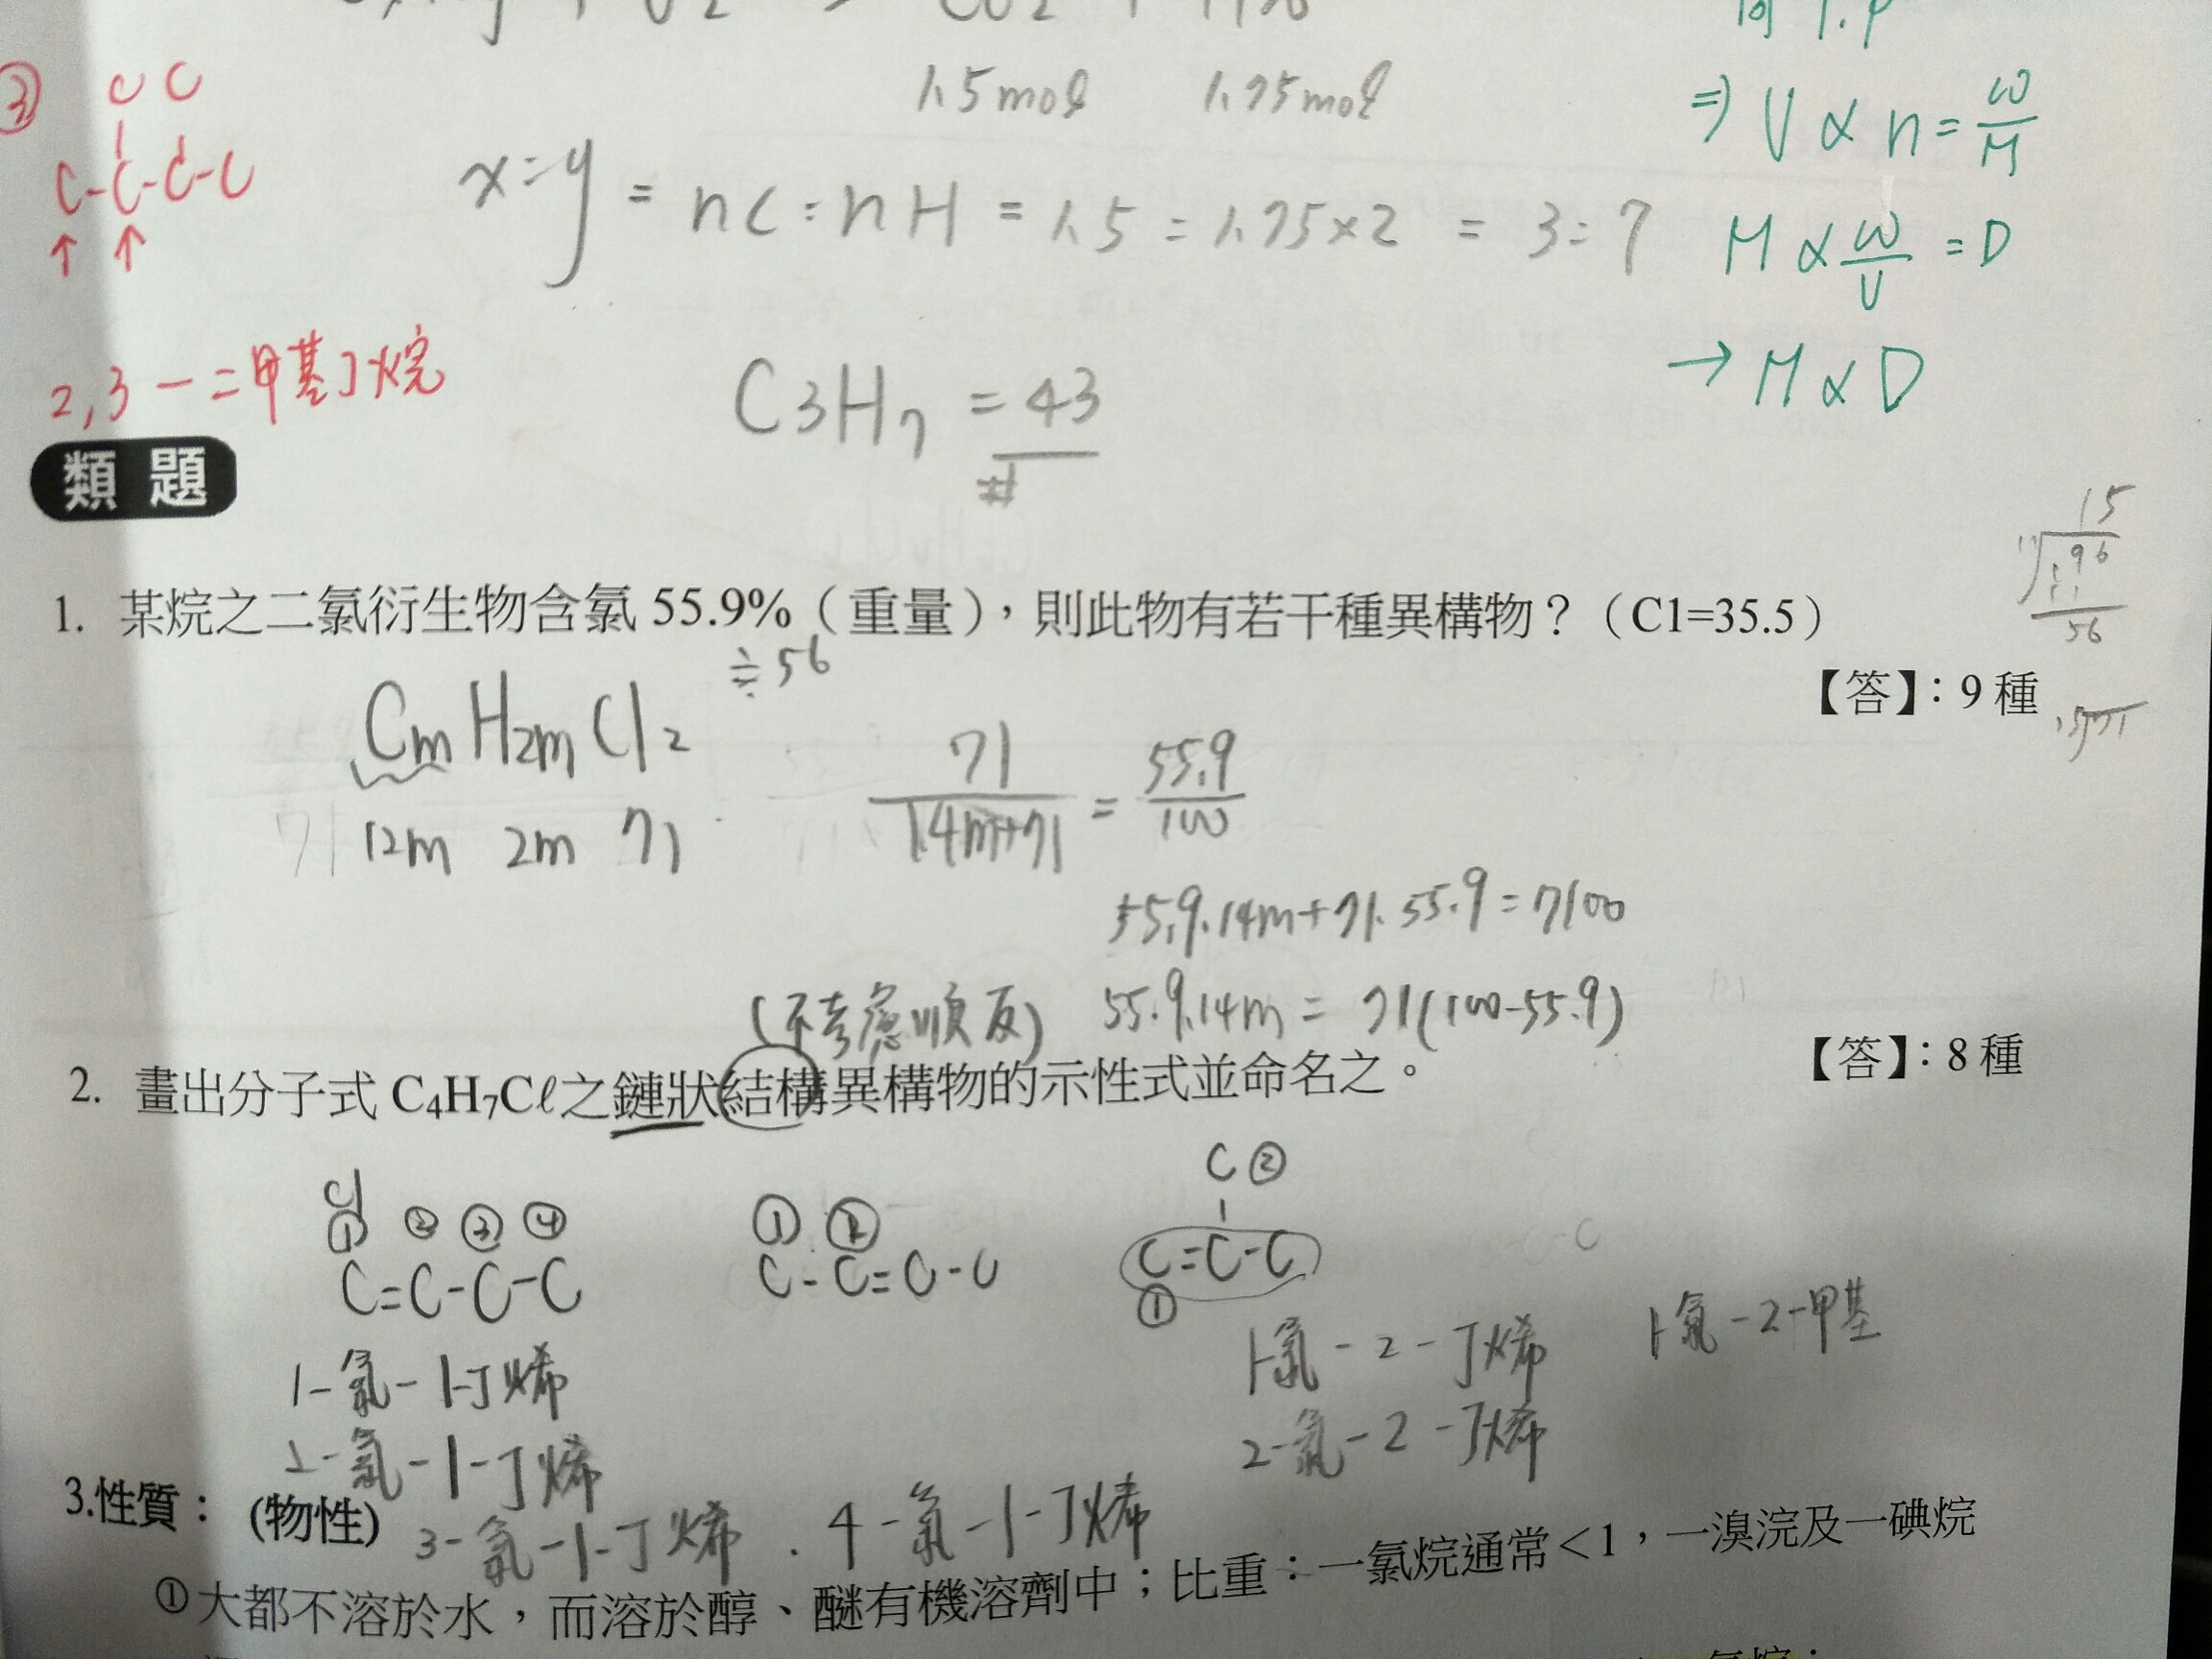 ③
C C
C-C-C-C
↑ ↑
2,3-二甲基丁烷
1.5mol 1.75mol
x:y = nC:nH = 1.5:1.75×2 = 3:7
C3H7 = 43
#
⇒ V∝n=W/M
M∝W/V=D
→ M∝D
類題
1. 某烷之二氯衍生物含氯 55.9%（重量），則此物有若干種異構物？（C1=35.5）
≒56
【答】：9 種
15
96
56
CmH2mCl2
12m 2m 71
71/14m+71 = 55.9/100
55.9.14m+71.55.9=7100
55.9.14m = 71(100-55.9)
(不考慮順反)
2. 畫出分子式 C₄H₇Cℓ之鏈狀結構異構物的示性式並命名之。
【答】：8 種
Cl
① ② ③ ④
C=C-C-C
① ②
C-C=C-C
C ②
C=C-C
①
1-氯-1-丁烯
2-氯-1-丁烯
3-氯-1-丁烯 . 4-氯-1-丁烯
1-氯-2-丁烯
2-氯-2-丁烯
1-氯-2-甲基
3.性質： (物性)
①大都不溶於水，而溶於醇、醚有機溶劑中；比重：一氯烷通常<1，一溴浣及一碘烷